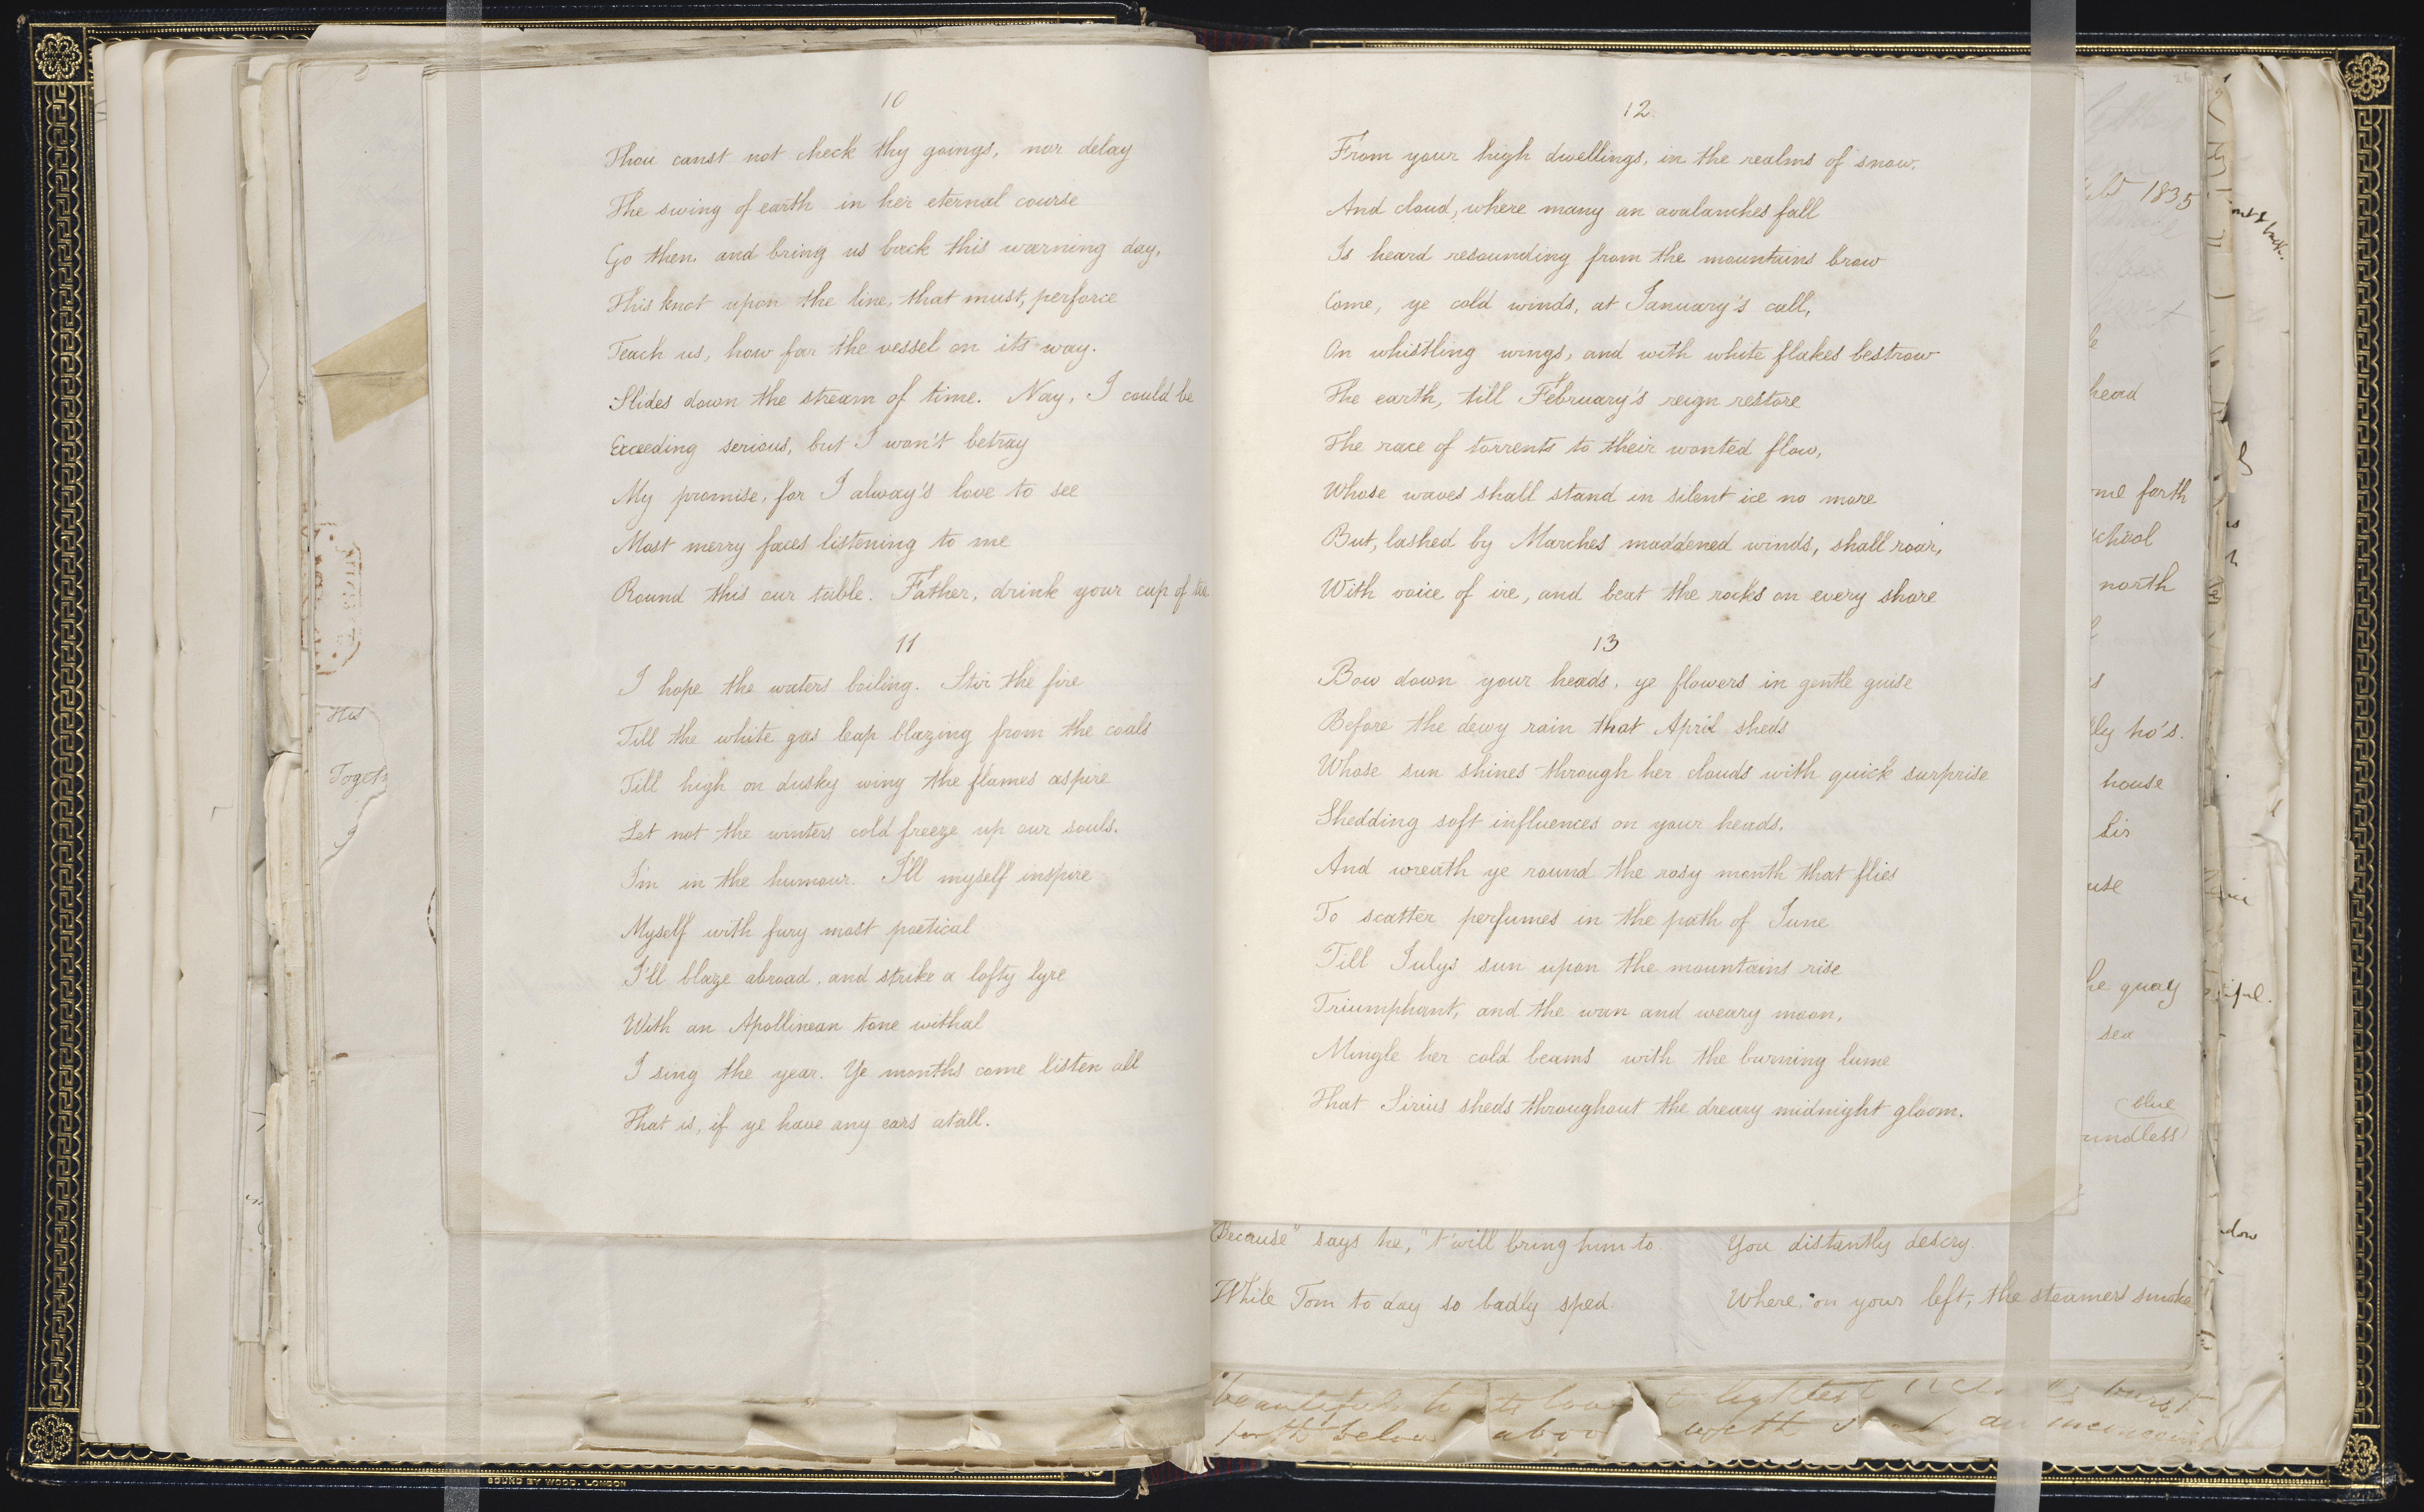 10
Thou canst not check thy goings, nor delay
The swing of earth in her eternal course
Go then, and bring us back this warning day,
This knot upon the line, that must, perforce
Teach us, how far the vessel on its way.
Slides down the stream of time. Nay, I could be
Exceeding serious, but I won't betray
My promise, for I alway's love to see
Most merry faces listening to me
Round this our table. Father, drink your cup of tea
11
I hope the waters boiling. Stir the fire
Till the white gas leap blazing from the coals
Till high on dusky wing the flames aspire
Let not the winters cold freeze up our souls.
I'm in the humour. I'll myself inspire
Myself with fury most poetical
I'll blaze abroad, and strike a lofty lyre
With an Apollinean tone withal
I sing the year. Ye months come listen all
That is, if ye have any ears atall.
His
BOUND BY WOOD. LONDON
12.
From your high dwellings, in the realms of snow,
And cloud, where many an avalanches fall
Is heard resounding from the mountains brow
Come, ye cold winds, at January's call,
On whistling wings, and with white flakes bestrow
The earth, till February's reign restore
The race of torrents to their wonted flow,
Whose waves shall stand in silent ice no more
But, lashed by Marches maddened winds, shall roar,
With voice of ire, and beat the rocks on every shore
13
Bow down your heads, ye flowers in gentle guise
Before the dewy rain that April sheds
Whose sun shines through her clouds with quick surprise
Shedding soft influences on your heads.
And wreath ye round the rosy month that flies
To scatter perfumes in the path of June
Till Julys sun upon the mountains rise
Triumphant, and the wan and weary moon,
Mingle her cold beams with the burning lume
That Sirius sheds throughout the dreary midnight gloom.
Because" says he, "t'will bring him to
While Tom to day so badly sped
You distantly descry.
Where, on your left, the steamers smoke
26
1835
head
forth
north
ho's.
house
Sir
quay
sea
blue
forth below above with